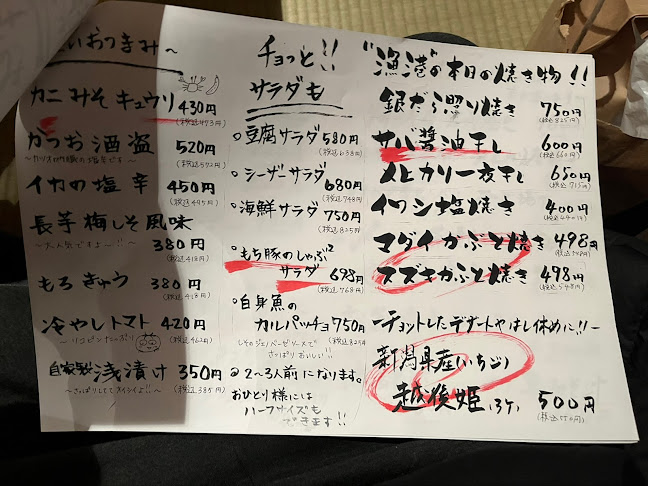 いおつまみ～
カニみそキュウリ 430円
(税込473円)
かつお酒盗 520円
(税込572円)
～カツオの内臓の塩辛です～
イカの塩辛 450円
(税込495円)
長芋梅しそ風味
～大人気ですよ～!!～ 380円
(税込418円)
もろきゅう 380円
(税込418円)
冷やしトマト 420円
(税込462円)
～リコピンたっぷり
自家製浅漬け 350円
(税込385円)
～さっぱりしててオイシイよ!!～
チョっと!!
サラダも
○豆腐サラダ 580円
(税込638円)
○シーザーサラダ
680円
(税込748円)
○海鮮サラダ 750円
(税込825円)
○もち豚のしゃぶ²
サラダ 698円
(税込768円)
○白身魚の
カルパッチョ 750円
(税込825円)
しそのジェノベーゼソースで
さっぱりおいしい!!
2～3人前になります。
おひとり様には
ハーフサイズも
できます!!
"漁港"の本日の焼き物!!
銀だら照り焼き 750円
(税込825円)
サバ醤油干し 600円
(税込660円)
メヒカリ一夜干し 650円
(税込715円)
イワシ塩焼き 400円
(税込440円)
マダイかぶと焼き 498円
(税込548円)
スズキかぶと焼き 498円
(税込548円)
～チョットしたデザートやはし休めに!!～
新潟県産(いちご)
越後姫(3ケ) 500円
(税込550円)